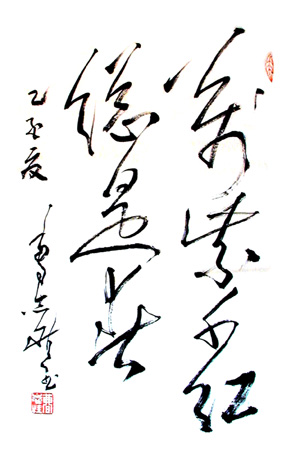 萬紫千紅
總是春
乙亥夏